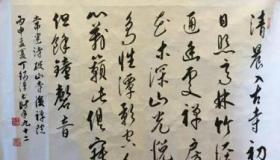 清晨入古寺初
日照高林竹径
通幽處禅房
花木深山光悦
鸟性潭影空人
心萬籁此俱寂
但餘鐘磬音
常建诗破山寺後禅院
丙申夏丁时年九十二